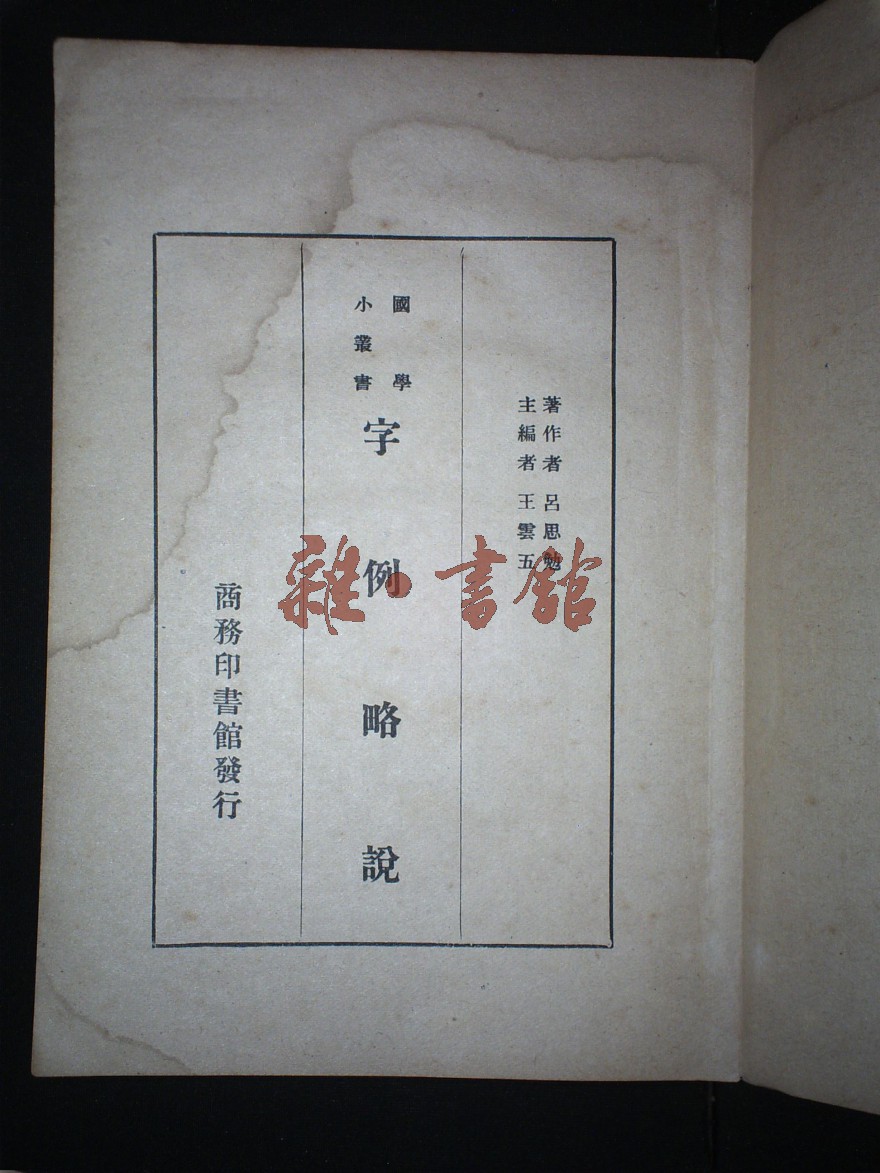 著作者 呂思勉
主編者 王雲五
國學
小叢書
字例略說
商務印書館發行
雜·書館